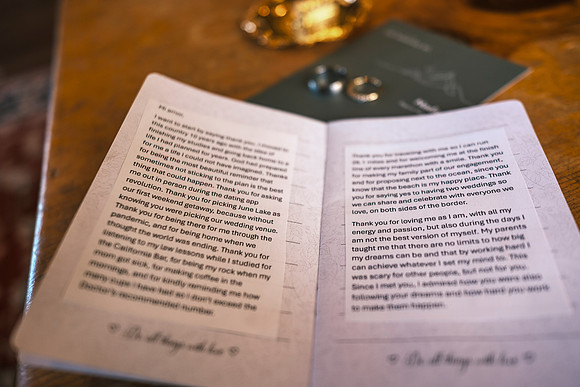 Hi amor,
I want to start by saying thank you. I moved to
this country 10 years ago with the idea of
finishing my studies and going back home to a
life I had planned for years. God had prepared
for me a life I could not have imagined. Thanks
for being the most beautiful reminder that
sometimes not sticking to the plan is the best
thing that could happen. Thank you for asking
me out in person during the dating app
revolution. Thank you for picking June Lake as
our first weekend getaway, because without
knowing you were picking our wedding venue.
Thank you for being there for me through the
pandemic, and for being home when we
thought the world was ending. Thank you for
listening to my law lessons while I studied for
the California Bar, for being my rock when my
mom got sick, for making coffee in the
mornings, and for kindly reminding me how
many cups I have had so I don't exceed the
Doctor's recommended number.
Do all things with love
Thank you for traveling with me so I can run
26.1 miles and for welcoming me at the finish
line of every marathon with a smile. Thank you
for making my family part of our engagement,
and for proposing next to the ocean, since you
know that the beach is my happy place. Thank
you for saying yes to having two weddings so
we can share and celebrate with everyone we
love, on both sides of the border.
Thank you for loving me as I am, with all my
energy and passion, but also during the days I
am not the best version of myself. My parents
taught me that there are no limits to how big
my dreams can be and that by working hard I
can achieve whatever I set my mind to. This
was scary for other people, but not for you.
Since I met you, I admired how you were also
following your dreams and how hard you work
to make them happen.
Do all things with love